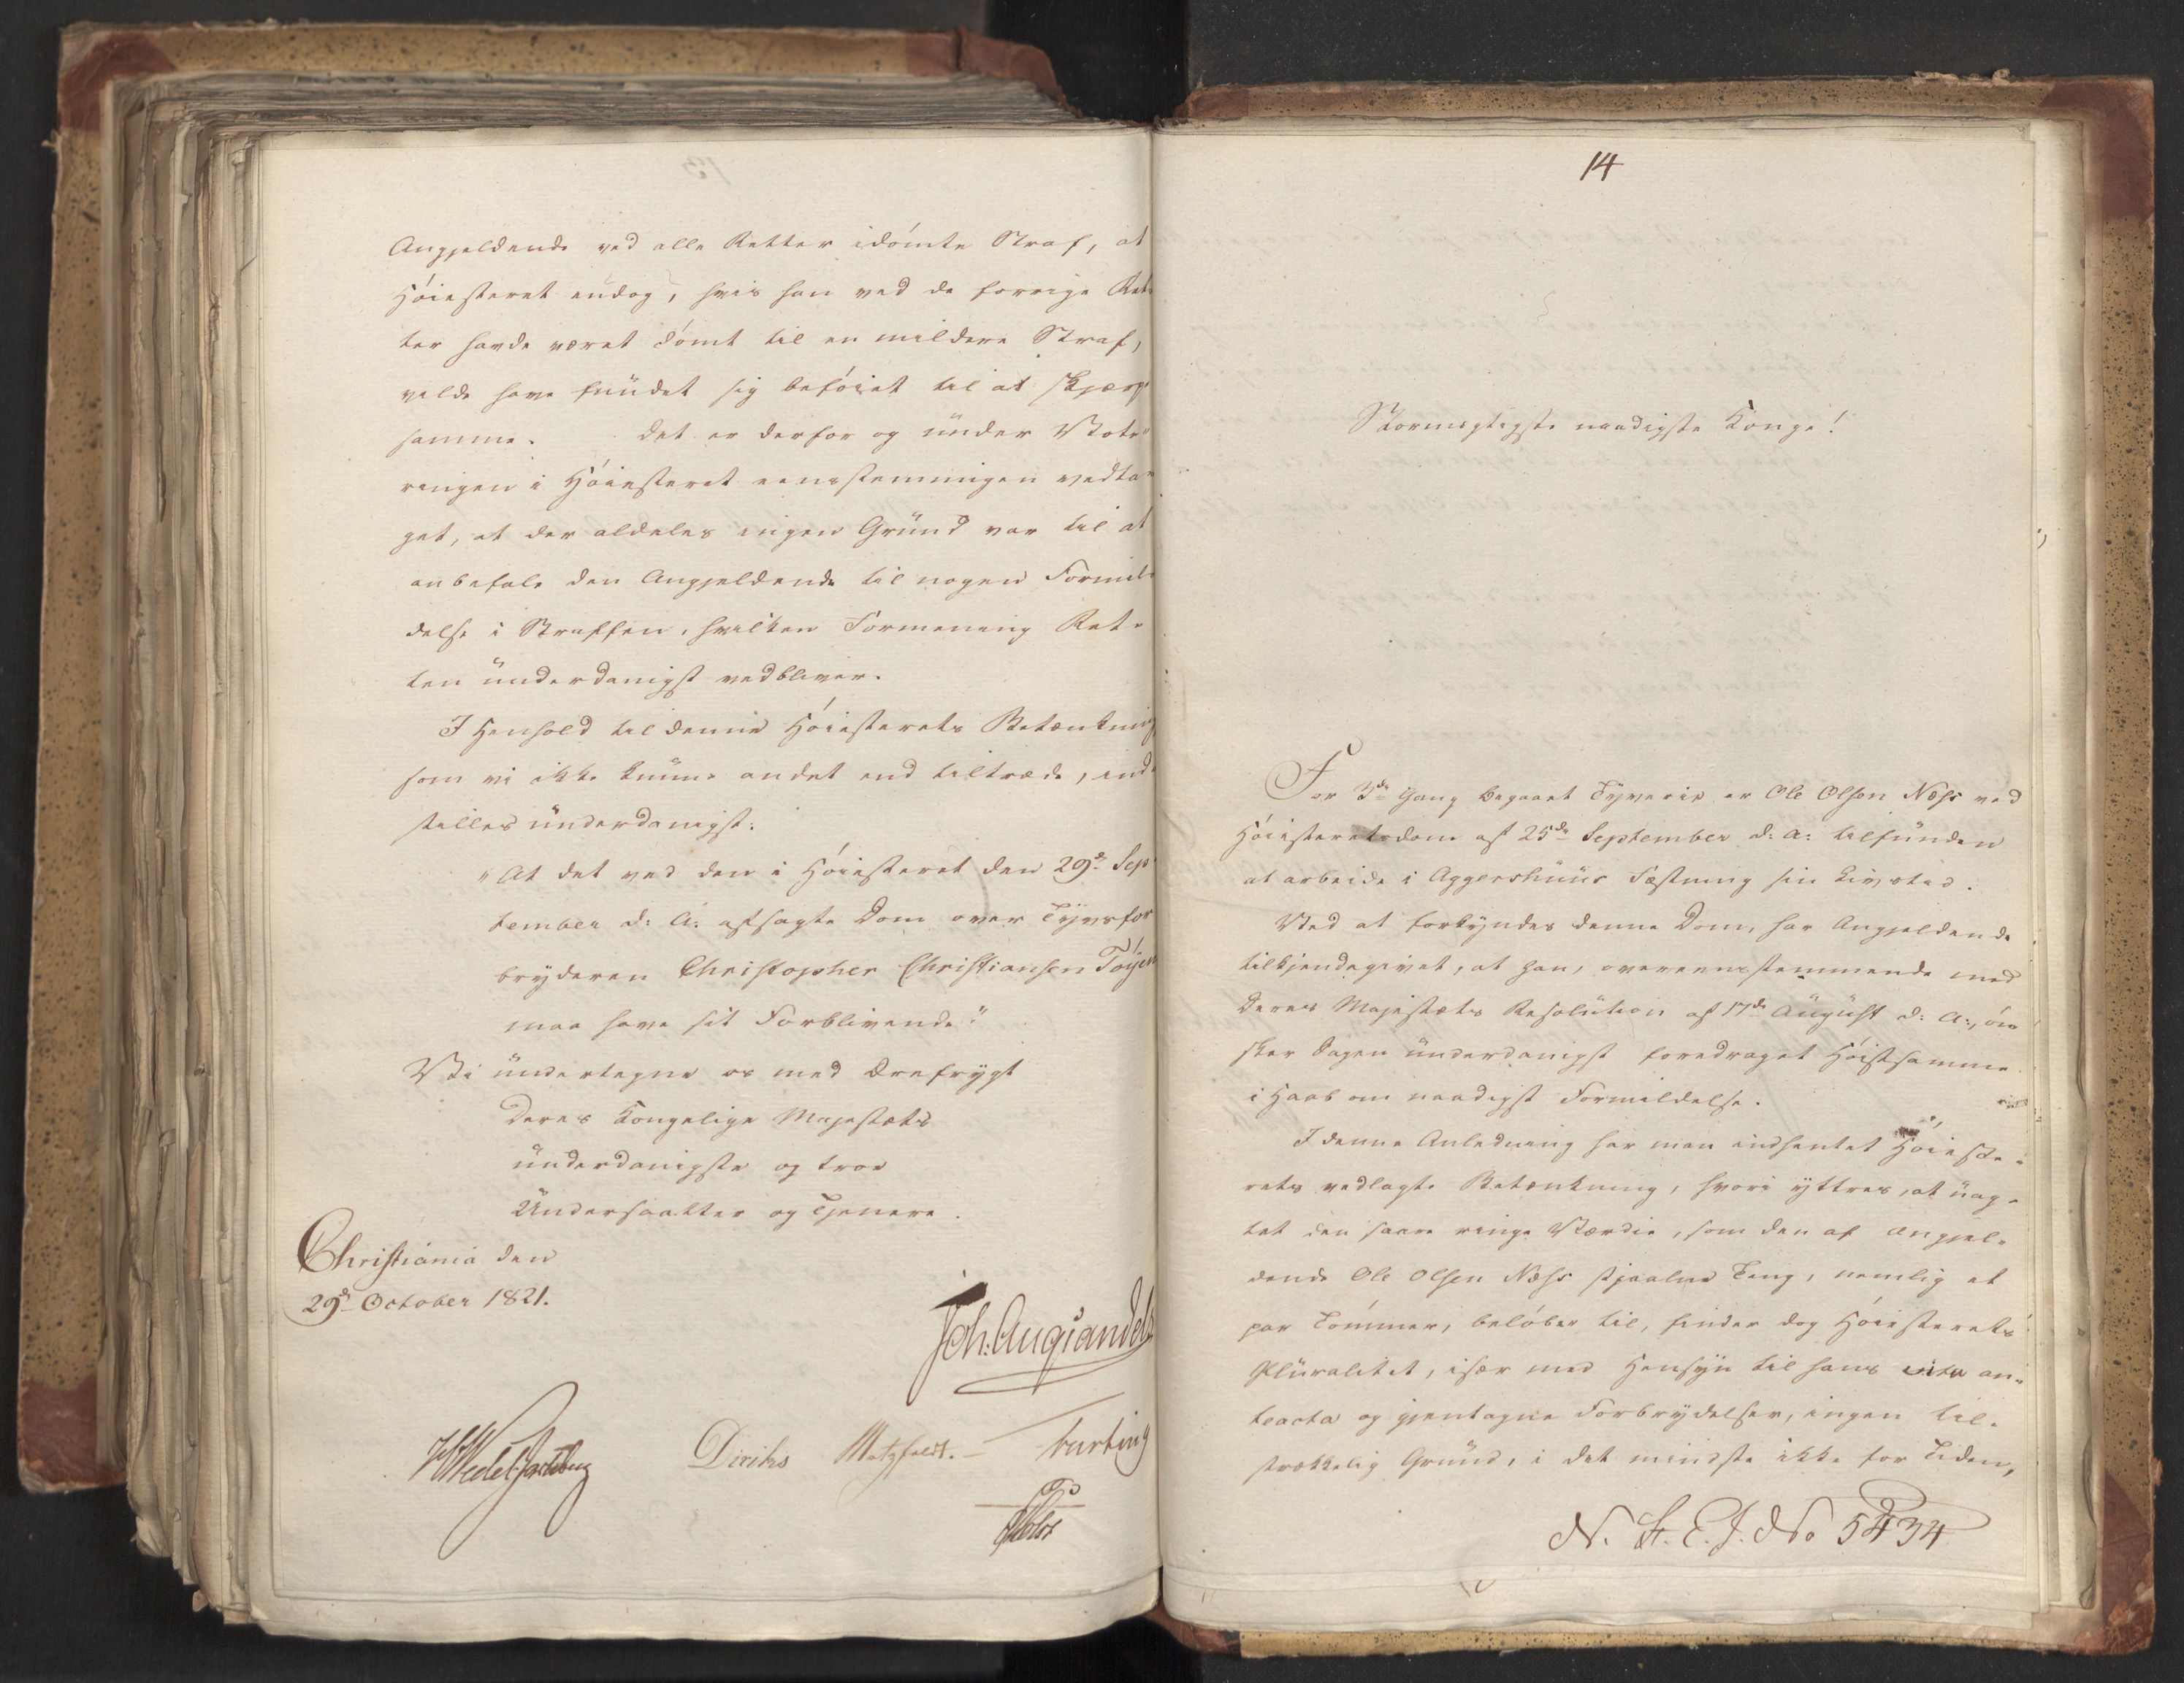 Angjeldende ved alle Retter idömte Straf, at
Höiesteret endog, hvis han ved de forrige Ret-
ter havde været dömt til en mildere Straf,
vilde have fundet sig beföiet til at skjærpe
samme. Det er derfor og under Vote-
ringen i Höiesteret eenstemmigen vedta-
get, at der aldeles ingen Grund var til at
anbefale den Angjeldende til nogen Formil-
delse i Straffen, hvilken Formening Ret-
ten underdanigst vedbliver.
I Henhold til denne Höiesterets Betænkning
som vi ikke kunne andet end tiltræde, ind-
stilles underdanigst:
"At det ved den i Höiesteret den 29de Sep-
tember d: A: afsagte Dom over Tyvsfor-
bryderen Christopher Christiansen Töyen
maa have sit Forblivende"
Vi undertegne os med Ærefrygt
Deres Kongelige Majestæts
underdanigste og troe
Undersaatter og Tjenere.
Christiania den
29de October 1821.
Joh: Aug: Sandels
HWedel Jarlsberg Diriks Motzfeldt.
Holst
14
Stormægtigste naadigste Konge!
For 3de Gang begaaet Tyverie er Ole Olsen Næss ved
Höiesteretsdom af 25de September d: A: tilfunden
at arbeide i Aggershuus Fæstning sin Livstid.
Ved at forkyndes denne Dom, har Angjeldende
tilkjendegivet, at han, overeensstemmende med
Deres Majestæts Resolution af 17de August d: A:, ön-
sker Sagen underdanigst foredraget Höistsamme
i Haab om naadigst Formildelse.
I denne Anledning har man indhentet Höieste-
rets vedlagte Betænkning, hvori yttres, at uag-
tet den saare ringe Værdie, som den af Angjel-
dende Ole Olsen Næss stjaalne Ting, nemlig et
par Tömmer, belöber til, finder dog Höiesterets
Pluralitet, især med Hensyn til hans vita an-
teacta og gjentagne Forbrydelser, ingen til-
strækkelig Grund, i det mindste ikke for Tiden,
N. St. E. J. No 5434